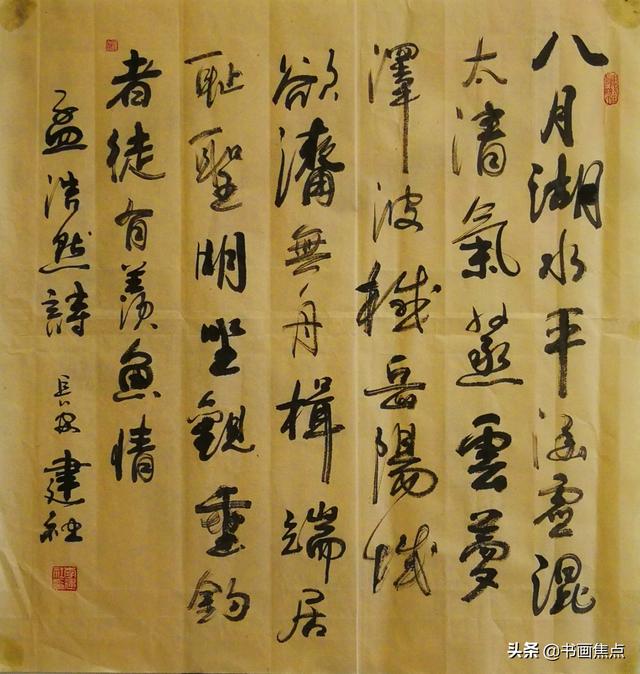 八月湖水平涵虛混
太清氣蒸雲夢
澤波撼岳陽城
欲濟無舟楫端居
耻聖明坐觀垂釣
者徒有羨魚情
孟浩然詩 長安建社
头条 @书画焦点